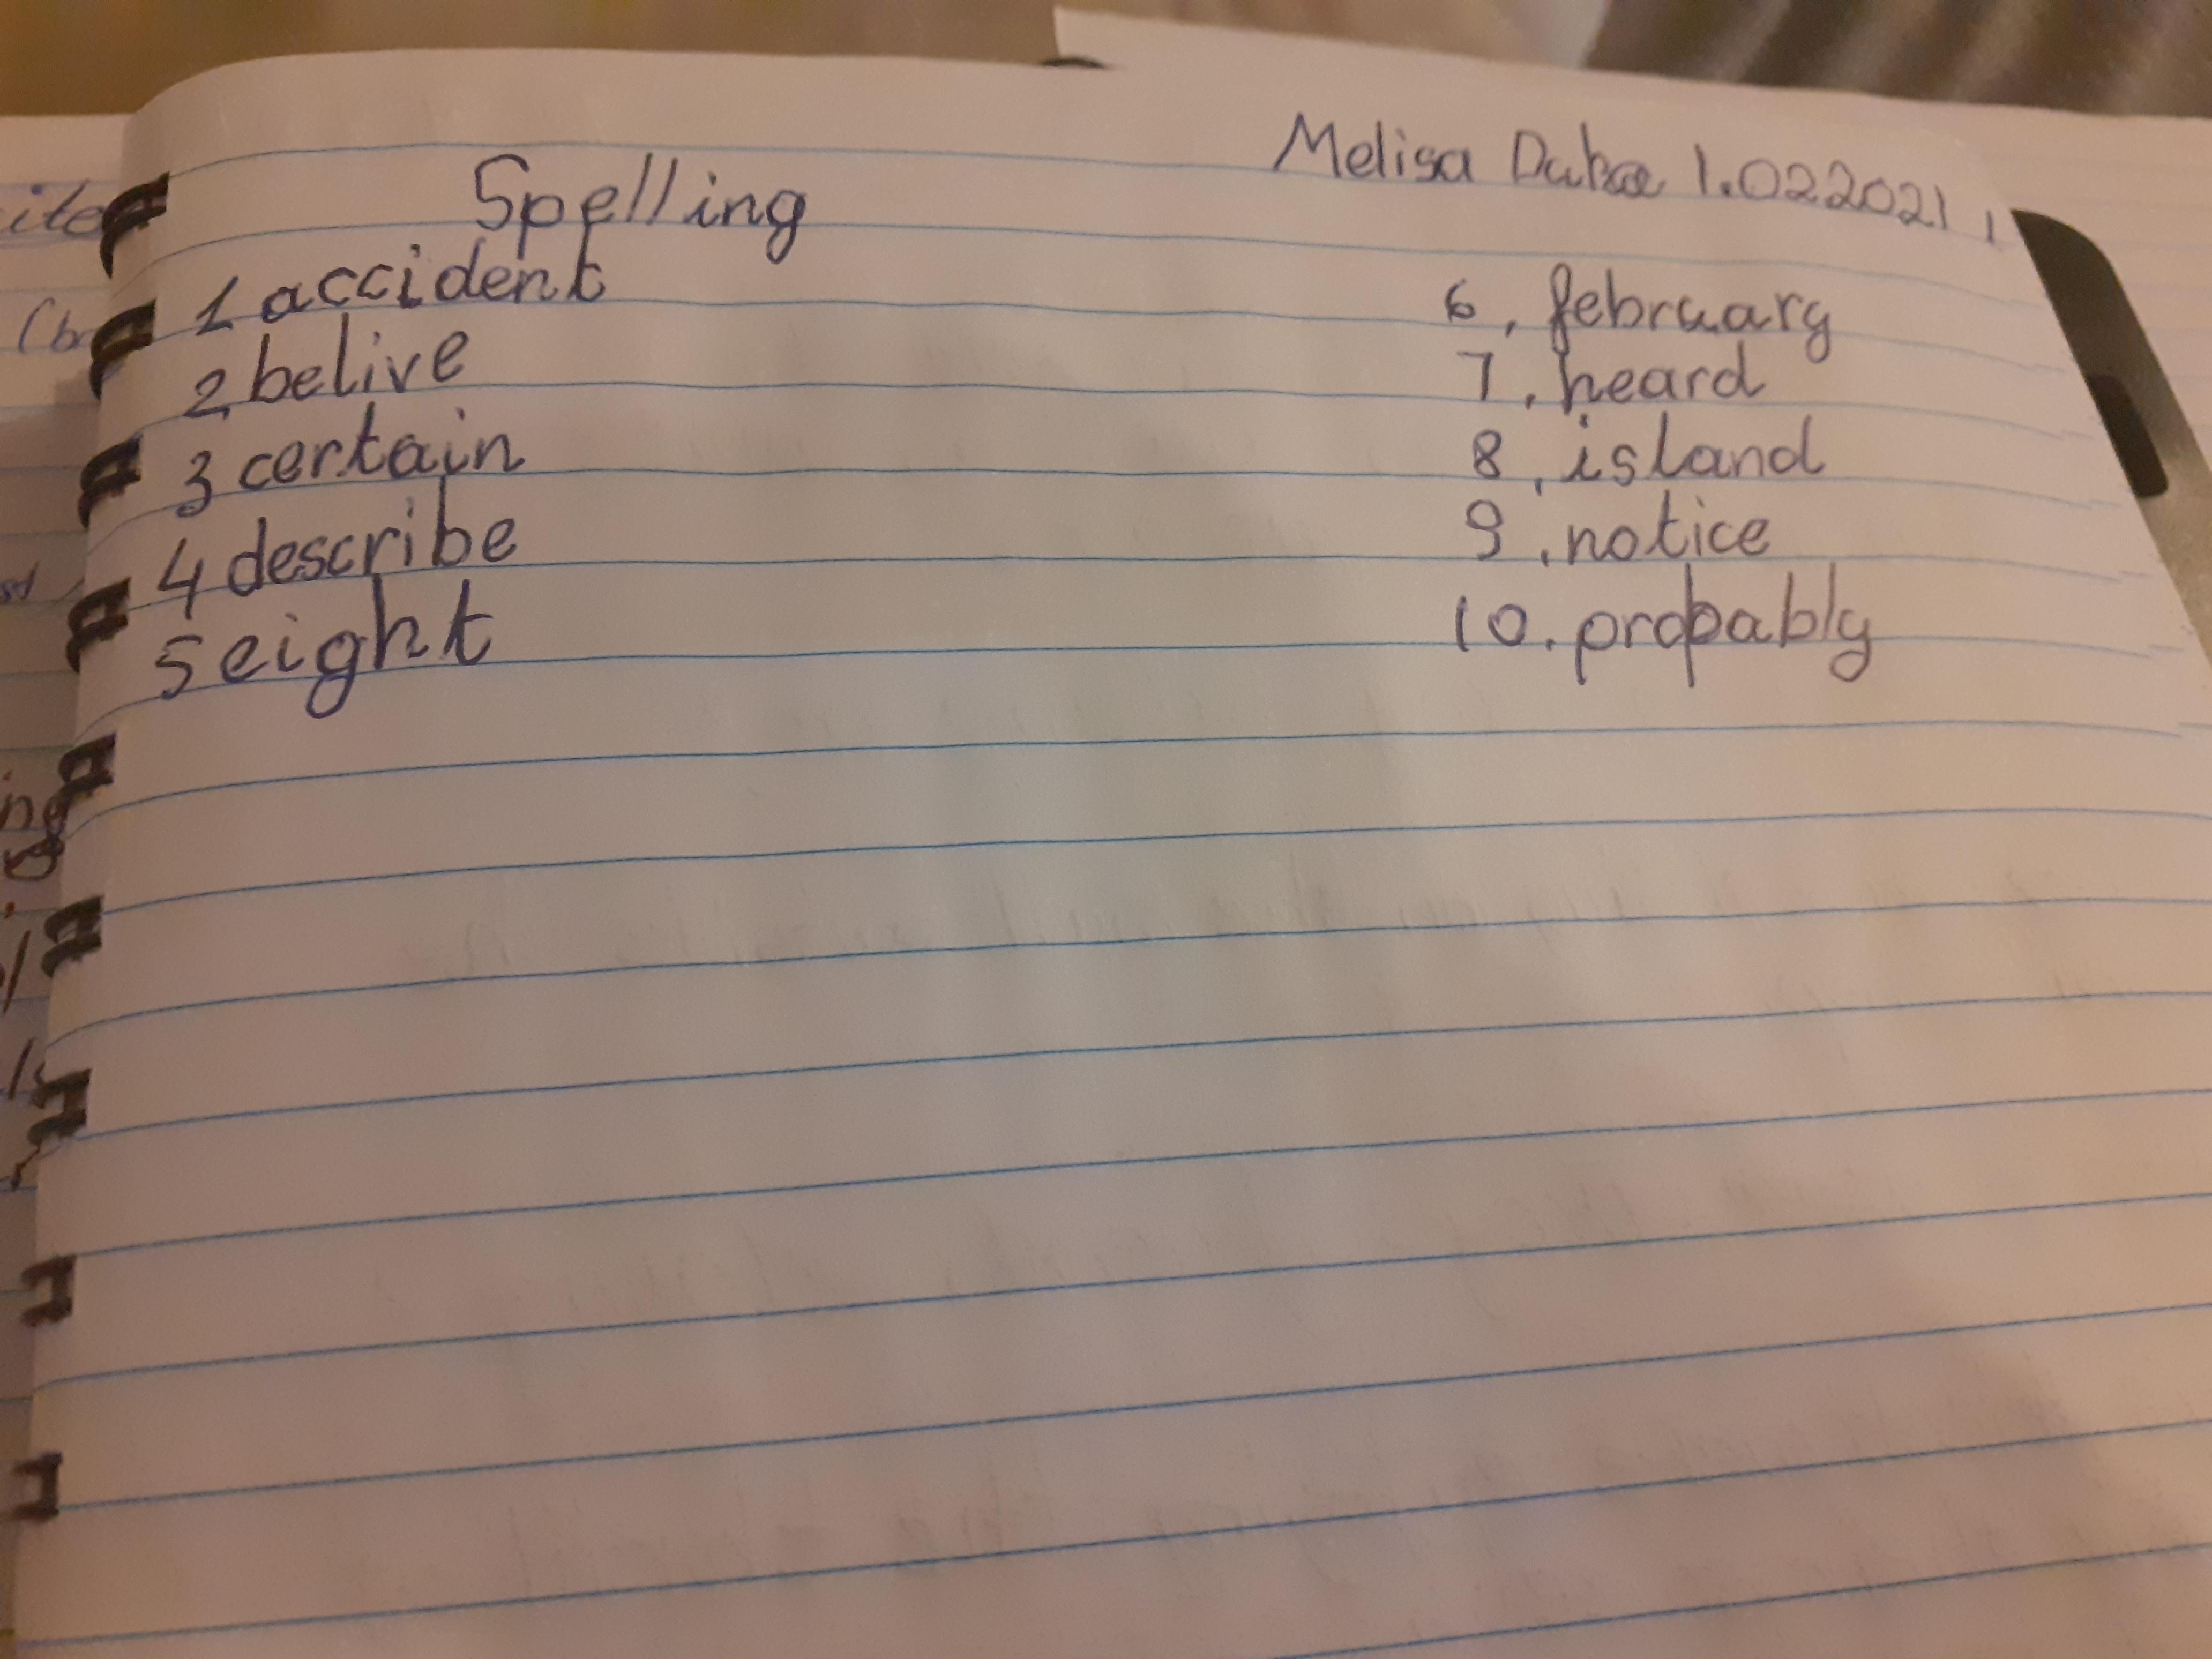 Spelling
Melisa 1.022021
1 accident
2 belive
3 certain
4 describe
5 eight
6. february
7. heard
8. island
9. notice
10. probably